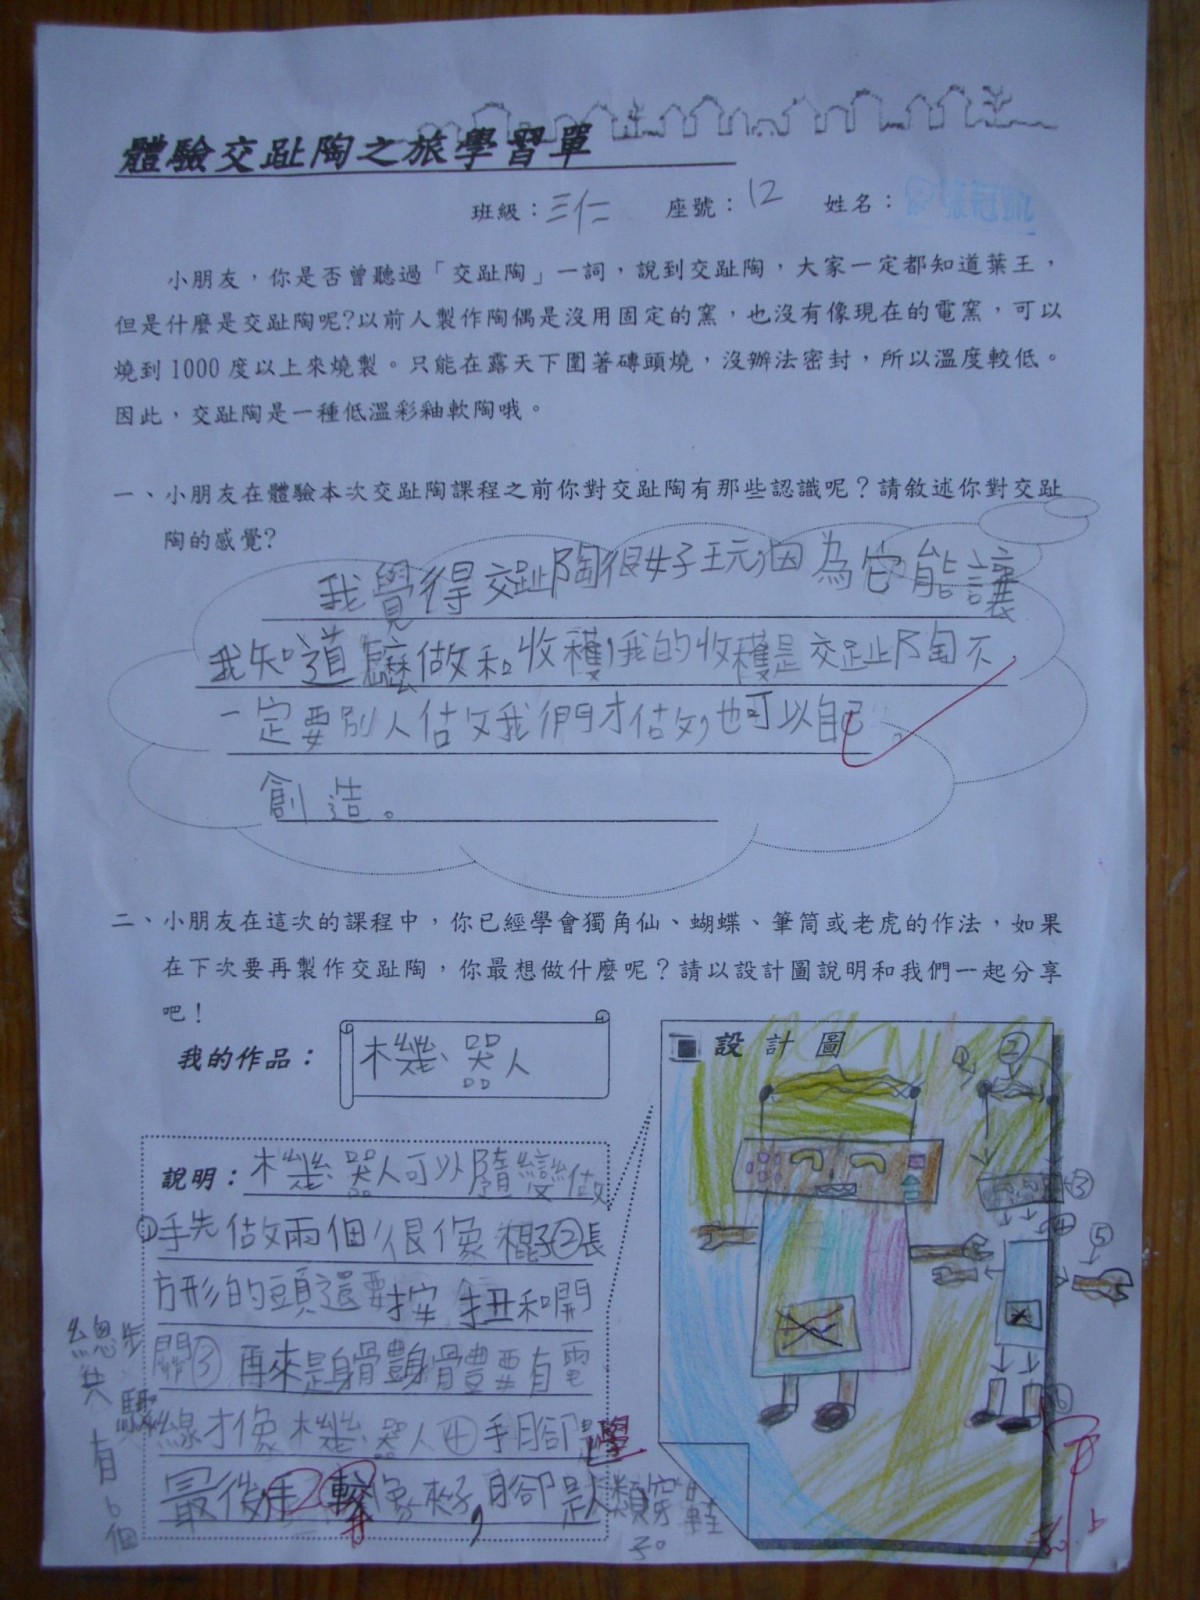 體驗交趾陶之旅學習單
班級：三仁 座號：12 姓名：
小朋友，你是否曾聽過「交趾陶」一詞，說到交趾陶，大家一定都知道葉王，
但是什麼是交趾陶呢?以前人製作陶偶是沒用固定的窯，也沒有像現在的電窯，可以
燒到1000度以上來燒製。只能在露天下圍著磚頭燒，沒辦法密封，所以溫度較低。
因此，交趾陶是一種低溫彩釉軟陶哦。
一、小朋友在體驗本次交趾陶課程之前你對交趾陶有那些認識呢？請敘述你對交趾
陶的感覺?
我覺得交趾陶很好玩,因為它能讓
我知道怎麼做和收穫,我的收穫是交趾陶不
一定要別人做我們才做,也可以自己
創造。
二、小朋友在這次的課程中，你已經學會獨角仙、蝴蝶、筆筒或老虎的作法，如果
在下次要再製作交趾陶，你最想做什麼呢？請以設計圖說明和我們一起分享
吧！
我的作品：機器人
設計圖
說明：機器人可以隨變做
①手先做兩個很像棍子②長
方形的頭還要按扭和開
關③再來是身體身體要有電
線才像機器人④手腳是
最後 腳是人類穿鞋
總共有6個
步驟
②
③
④
⑤